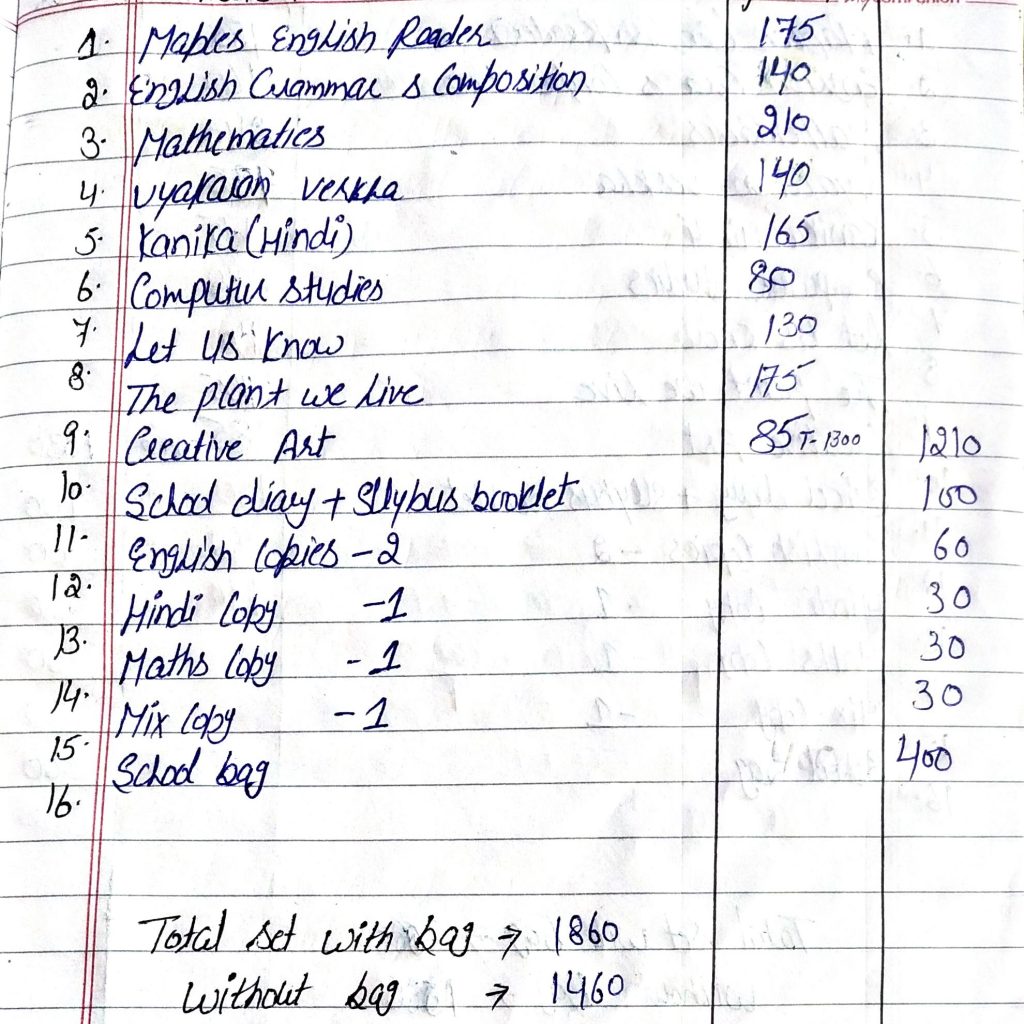 1. Maples English Reader 175
2. English Grammar & Composition 140
3. Mathematics 210
4. Vyakaran Verkha 140
5. Kanika (Hindi) 165
6. Computer studies 80
7. Let us Know 130
8. The plant we Live 175
9. Creative Art 85 T-1300 1210
10. School diary + Sllybus booklet 100
11. English Copies -2 60
12. Hindi Copy -1 30
13. Maths Copy -1 30
14. Mix Copy -1 30
15. School bag 400
16.
Total set with bag → 1860
without bag → 1460